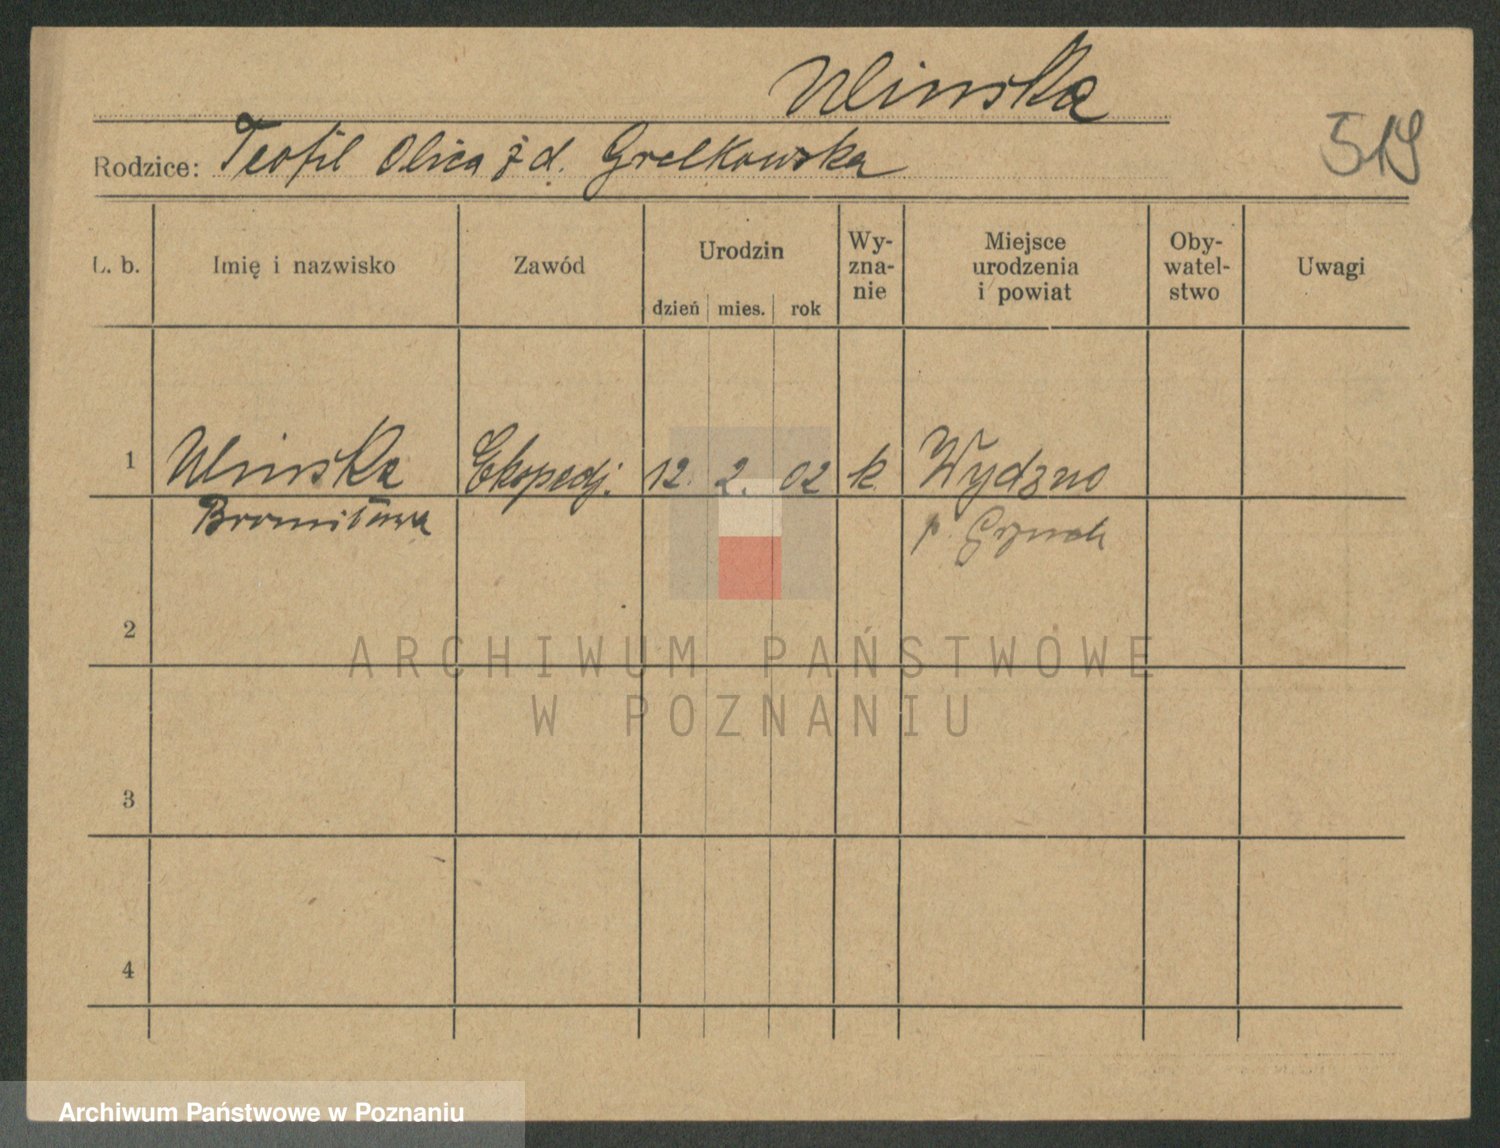 Ulinska
519
Rodzice: Teofil Olica z d. Grelkowska
L. b.
Imię i nazwisko
Zawód
Urodzin
dzień mies. rok
Wy-
zna-
nie
Miejsce
urodzenia
i powiat
Oby-
watel-
stwo
Uwagi
1 Ulinska Ekspedj. 12. 2. 02 k. Wydzno
Bronisława p.
2
3
4
ARCHIWUM PAŃSTWOWE
W POZNANIU
Archiwum Państwowe w Poznaniu